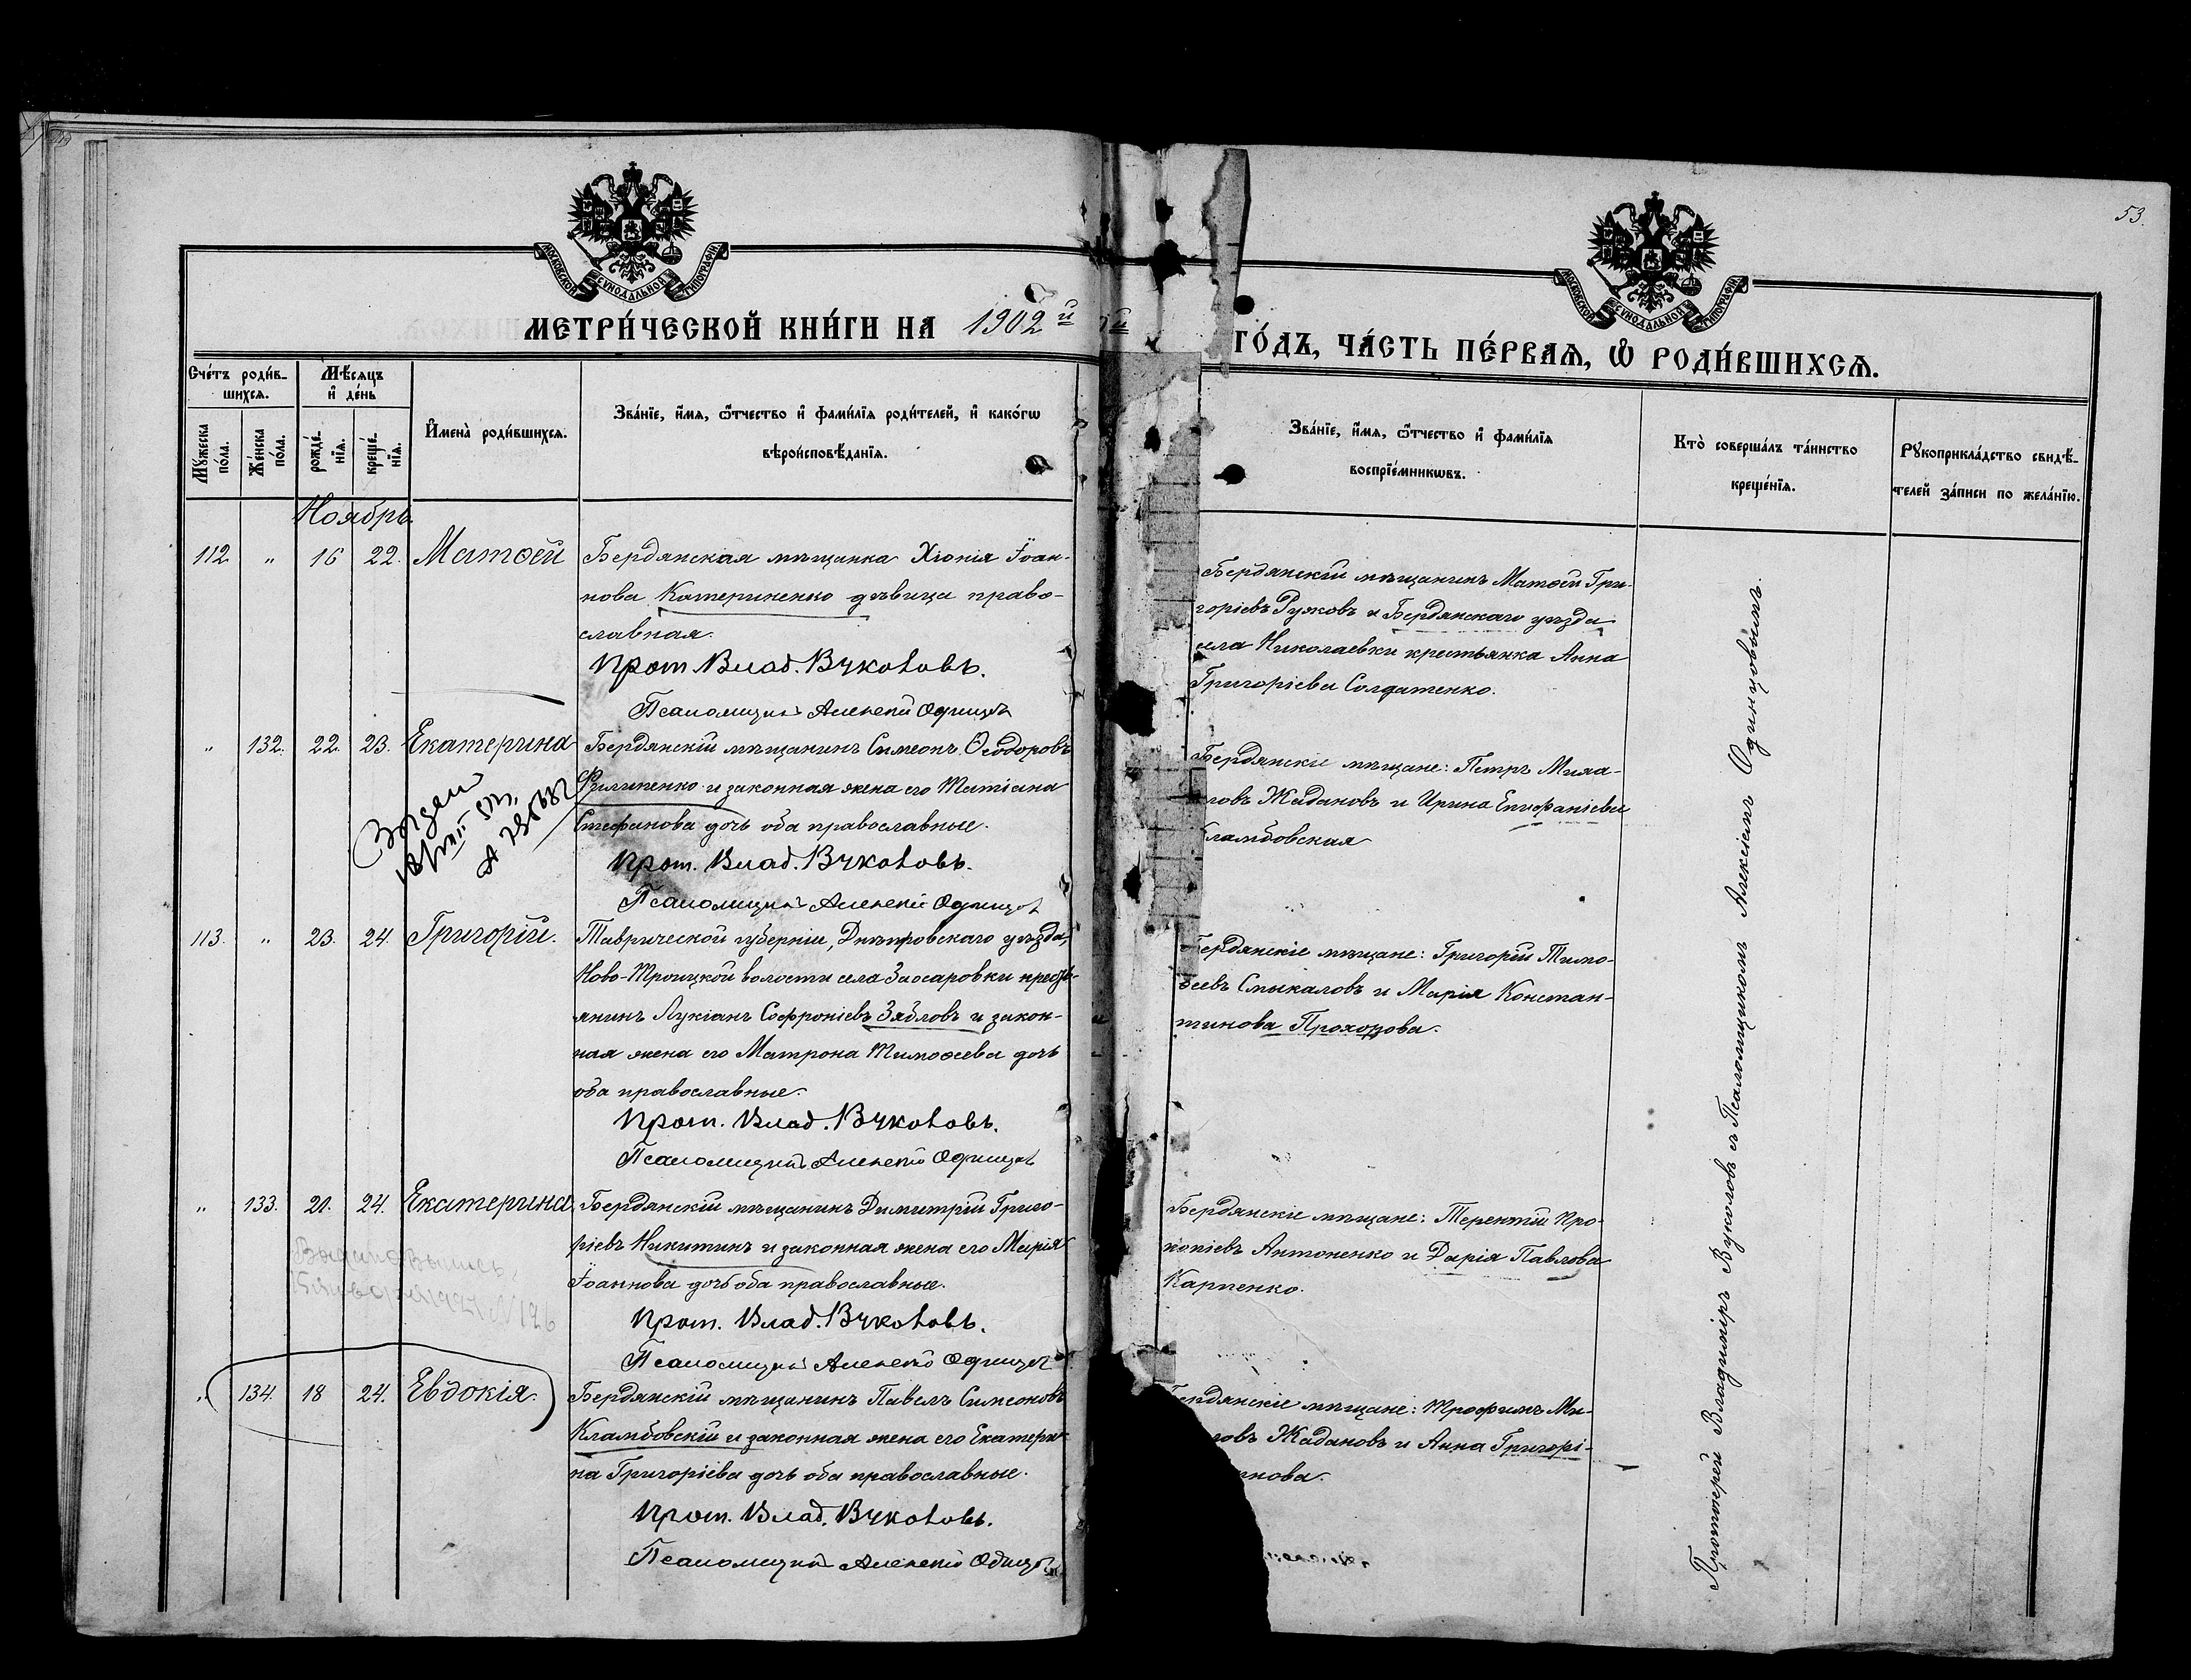 53
МОСКОВСКОЙ СѴНОДАЛЬНОЙ ТИПОГРАФІИ
МОСКОВСКОЙ СѴНОДАЛЬНОЙ ТИПОГРАФІИ
МЕТРИ́ЧЕСКОЙ КНИ́ГИ НА 1902 й
ГО́ДЪ, ЧА́СТЬ ПЕ́РВАѦ, Ѡ҆ РОДИ́ВШИХСѦ.
Сче́тъ роди́в-
шихсѧ.
Мꙋ́жеска по́ла.
Же́нска по́ла.
Мѣ́сѧцъ
и҆ де́нь
рожде́-
нїѧ.
креще́-
нїѧ.
И҆мена̀ роди́вшихсѧ.
Зва́нїе, и҆́мѧ, ѻ҆́тчество и҆ фами́лїѧ роди́телей, и҆ како́гѡ
вѣроисповѣ́данїѧ.
Зва́нїе, и҆́мѧ, ѻ҆́тчество и҆ фами́лїѧ
воспрїе́мникѡвъ.
Кто̀ соверша́лъ та́инство
креще́нїѧ.
Рꙋкоприкла́дство свидѣ́-
телей за́писи по жела́нїю.
Ноябрь.
112. " 16 22. Матѳей
Бердянская мѣщанка Хіонія Іоан-
нова Катериненко дѣвица право-
славная.
Прот. Влад. Вуколовъ.
Псаломщикъ Алексѣй Одинцовъ
Бердянскій мѣщанинъ Матѳей Гри-
горіевъ Ружковъ и Бердянскаго уѣзда
села Николаевки крестьянка Анна
Григоріева Солдатенко.
" 132. 22. 23. Екатерина
Бердянскій мѣщанинъ Симеонъ Ѳеодоровъ
Филипенко и законная жена его Татіана
Стефанова дочь оба православные.
Прот. Влад. Вуколовъ.
Псаломщикъ Алексѣй Одинцовъ
Бердянскіе мѣщане: Петръ Миха-
ловъ Жадановъ и Ирина Епифаніева
Кламбовская
113. " 23. 24. Григорій.
Таврической губерніи, Днѣпровскаго уѣзда,
Ново-Троицкой волости села кресть-
янинъ Лукіанъ Софроніевъ Зябловъ и закон-
ная жена его Матрона Тимоѳеева дочь
оба православные.
Прот. Влад. Вуколовъ.
Псаломщикъ Алексѣй Одинцовъ
Бердянскіе мѣщане: Григорій Тимо-
ѳеевъ Смыкаловъ и Марія Констан-
тинова Прохорова.
" 133. 21. 24. Екатерина
Бердянскій мѣщанинъ Димитрій Григо-
ріевъ Никитинъ и законная жена его Марія
Іоаннова дочь оба православные.
Прот. Влад. Вуколовъ.
Псаломщикъ Алексѣй Одинцовъ
Бердянскіе мѣщане: Терентій Про-
копіевъ Антоненко и Дарія Павлова
Карпенко.
" 134. 18 24. Евдокія.
Бердянскій мѣщанинъ Павелъ Симеоновъ
Кламбовскій и законная жена его Екатери-
на Григоріева дочь оба православные.
Прот. Влад. Вуколовъ.
Псаломщикъ Алексѣй Одинцовъ
Бердянскіе мѣщане: Трофимъ Ми-
ловъ Жадановъ и Анна Григорі-
нова.
Протоіерей Владиміръ Вуколовъ съ Псаломщикомъ Алексіемъ Одинцовымъ.